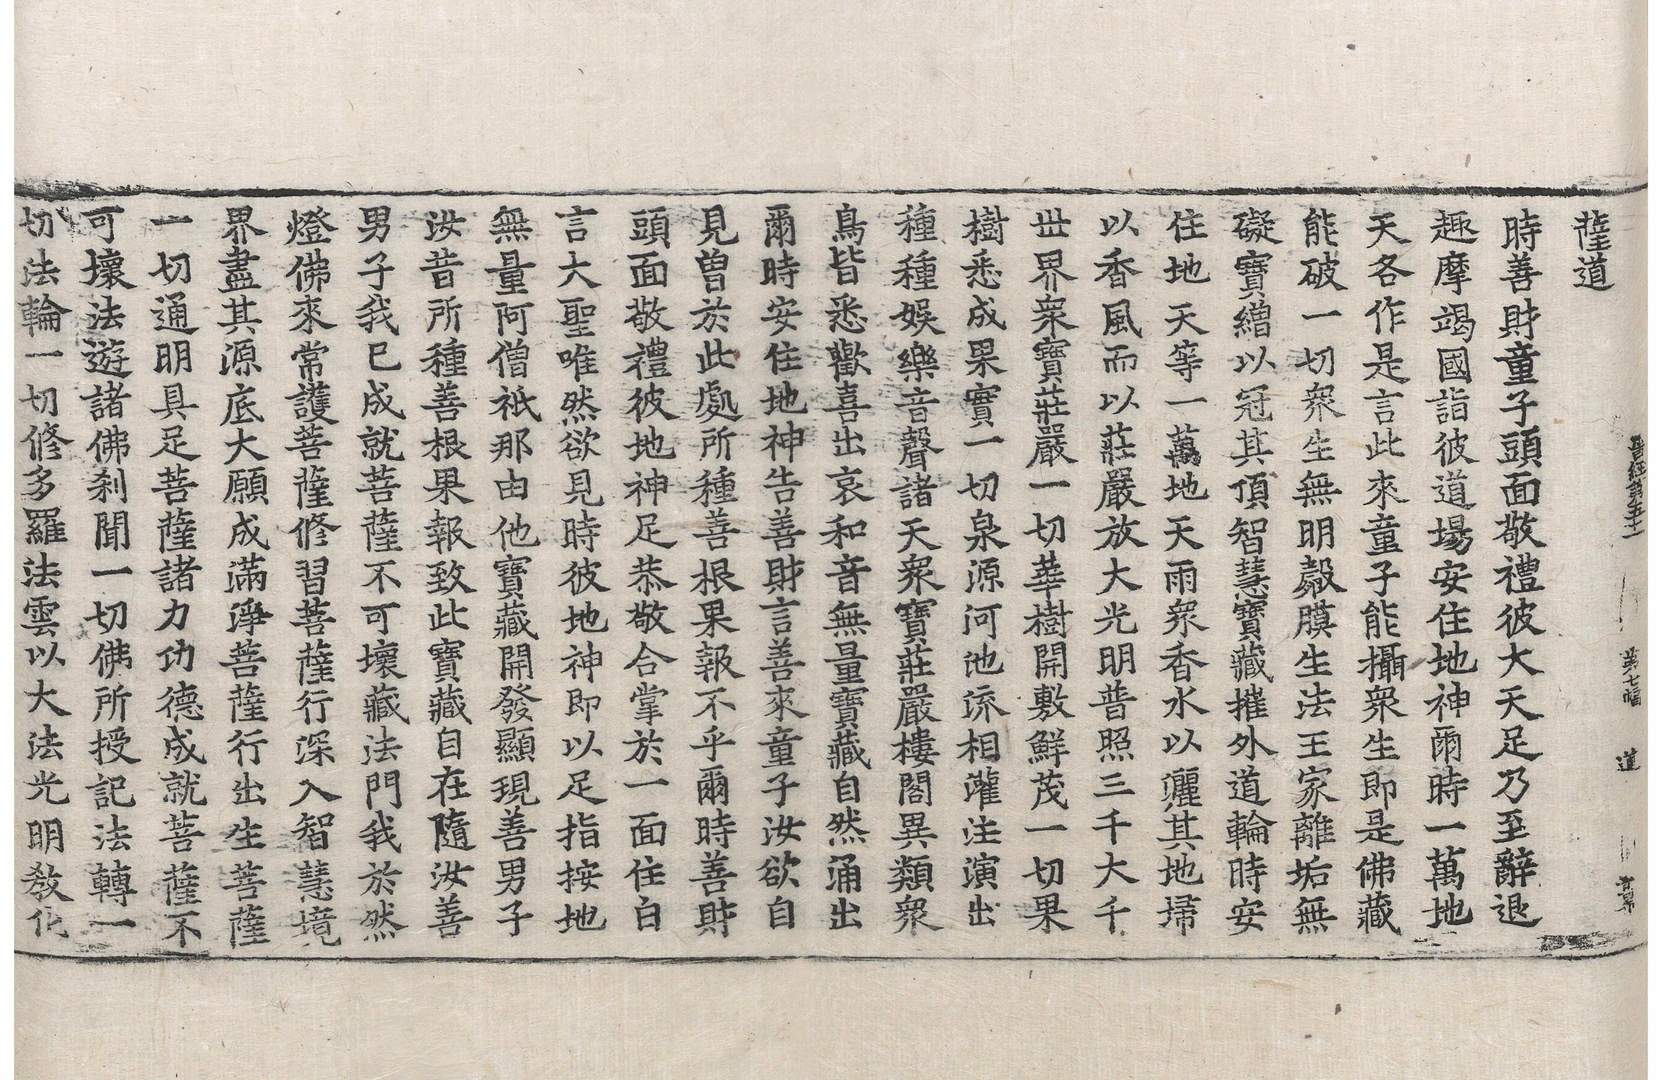 晉經第五十一 第七幅 道
薩道
時善財童子頭面敬禮彼大天足乃至辭退
趣摩竭國詣彼道場安住地神爾時一萬地
天各作是言此來童子能攝衆生即是佛藏
能破一切衆生無明㲉膜生法王家離垢無
礙寶繒以冠其頂智慧寶藏摧外道輪時安
住地天等一萬地天雨衆香水以灑其地掃
以香風而以莊嚴放大光明普照三千大千
世界衆寶莊嚴一切華樹開敷鮮茂一切果
樹悉成果實一切泉源河池流相灌注演出
種種娛樂音聲諸天衆寶莊嚴樓閣異類衆
鳥皆悉歡喜出哀和音無量寶藏自然涌出
爾時安住地神告善財言善來童子汝欲自
見曽於此處所種善根果報不乎爾時善財
頭面敬禮彼地神足恭敬合掌於一面住白
言大聖唯然欲見時彼地神即以足指按地
無量阿僧祇那由他寶藏開發顯現善男子
汝昔所種善根果報致此寶藏自在隨汝善
男子我已成就菩薩不可壞藏法門我於然
燈佛來常護菩薩修習菩薩行深入智慧境
界盡其源底大願成滿淨菩薩行出生菩薩
一切通明具足菩薩諸力功德成就菩薩不
可壞法遊諸佛刹聞一切佛所授記法轉一
切法輪一切修多羅法雲以大法光明教化